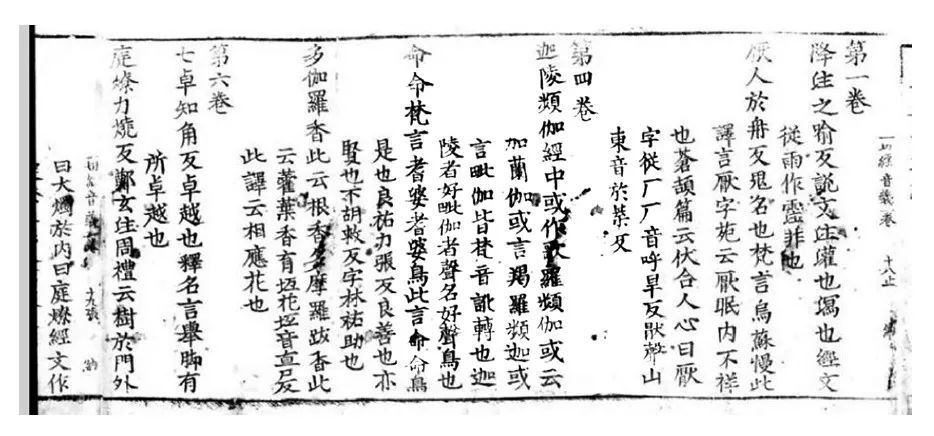 一切經音義卷 十八止
第一卷
降注之喻反說文注灌也瀉也經文
從雨作霔非也
厭人於冉反鬼名也梵言烏蘇慢此
譯言厭字苑云厭眠内不祥
也蒼頡篇云伏合人心曰厭
字從厂厂音呼旱反猒聲山
東音於葉反
第四卷
迦陵頻伽經中或作歌羅頻伽或云
加蘭伽或言羯羅頻迦或
言毗伽皆梵音訛轉也迦
陵者好毗伽者聲名好聲鳥也
命命梵言耆婆耆婆鳥此言命命鳥
是也良祐力張反良善也亦
賢也下胡救反字林祐助也
多伽羅香此云根香多摩羅跋香此
云藿葉香有
此譯云相應花也
第六卷
七卓知角反卓越也釋名言舉脚有
所卓越也
庭燎力燒反鄭玄注周禮云樹於門外
曰大燭於内曰庭燎經文作